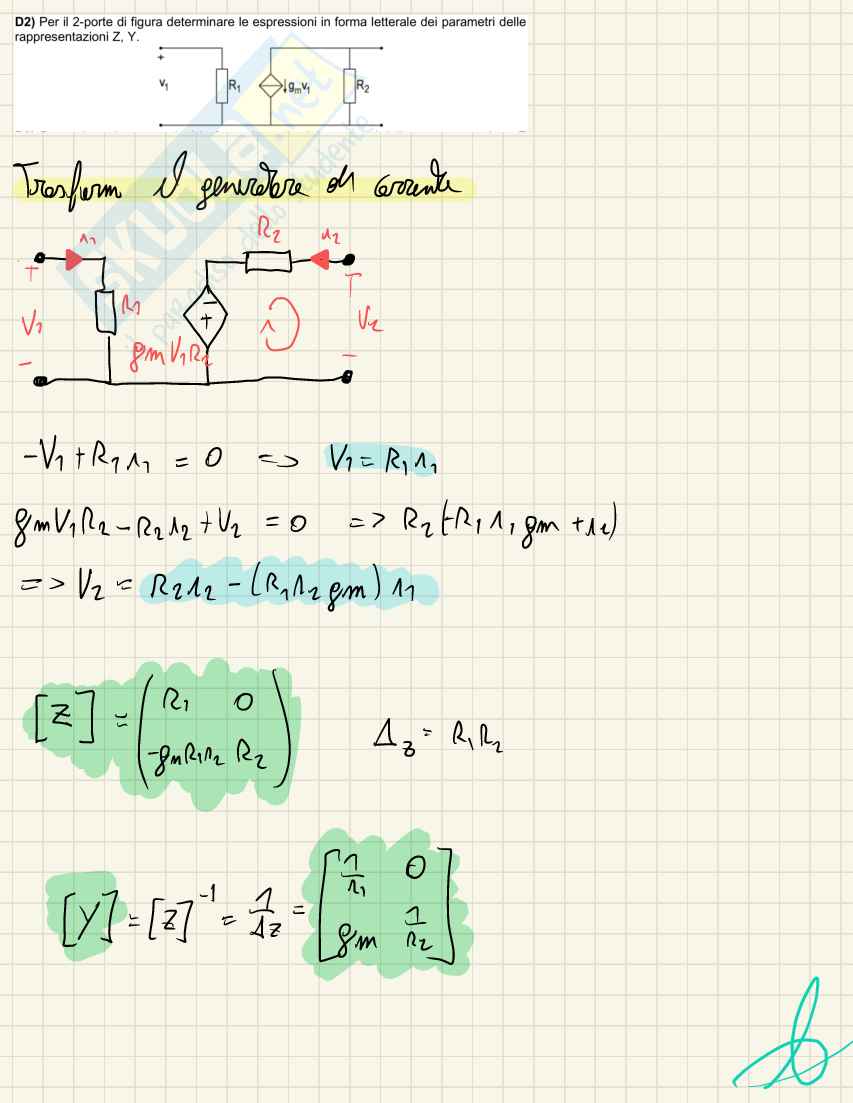 D2) Per il 2-porte di figura determinare le espressioni in forma letterale dei parametri delle
rappresentazioni Z, Y.
+
v₁ R₁ gₘv₁ R₂
Trasform il generatore di corrente
ı₁ R₂ ı₂
+ +
V₁ R₁ − + V₂
gm V₁R₂
− −
-V₁ + R₁ı₁ = 0 => V₁ = R₁ı₁
gmV₁R₂ - R₂ı₂ + V₂ = 0 => R₂(-R₁ı₁gm + ı₂)
=> V₂ = R₂ı₂ - (R₁R₂gm) ı₁
[Z] = ( R₁ 0
-gmR₁R₂ R₂ ) Δz = R₁R₂
[Y] = [Z]⁻¹ = 1/Δz = [ 1/R₁ 0
gm 1/R₂ ]